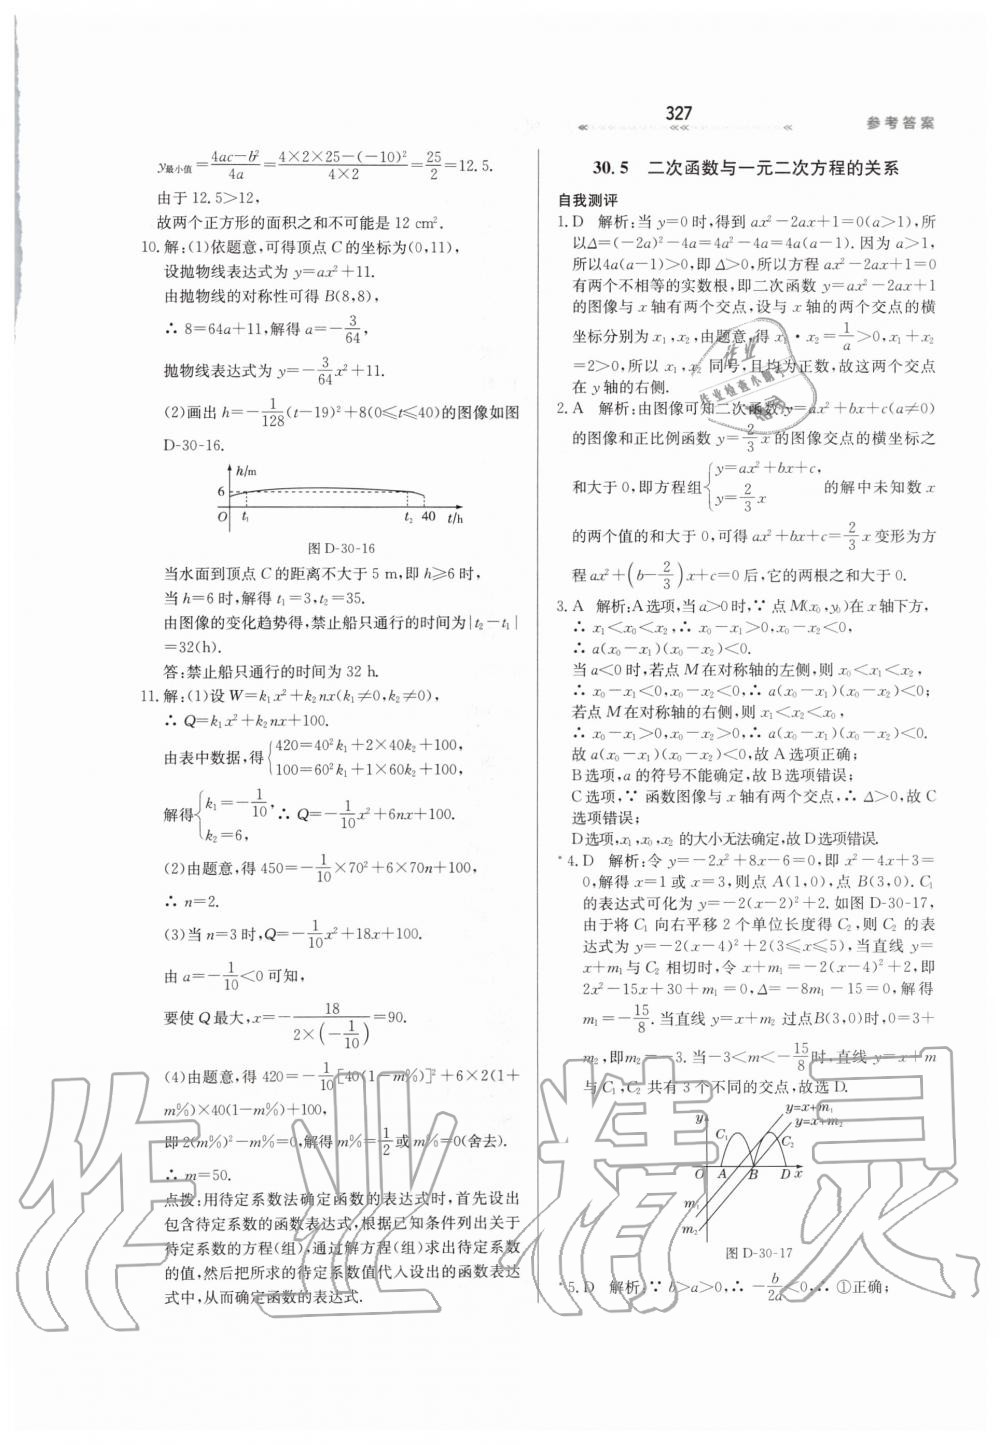 327
参考答案
y最小值=\frac{4ac-b²}{4a}=\frac{4×2×25-(-10)²}{4×2}=\frac{25}{2}=12.5.
由于 12.5>12,
故两个正方形的面积之和不可能是 12 cm².
10.解:(1)依题意,可得顶点 C 的坐标为(0,11),
设抛物线表达式为 y=ax²+11.
由抛物线的对称性可得 B(8,8),
∴ 8=64a+11,解得 a=-\frac{3}{64},
抛物线表达式为 y=-\frac{3}{64}x²+11.
(2)画出 h=-\frac{1}{128}(t-19)²+8(0≤t≤40)的图像如图
D-30-16.
h/m
6
O t₁ t₂ 40 t/h
图 D-30-16
当水面到顶点 C 的距离不大于 5 m,即 h≥6 时,
当 h=6 时,解得 t₁=3,t₂=35.
由图像的变化趋势得,禁止船只通行的时间为|t₂-t₁|
=32(h).
答:禁止船只通行的时间为 32 h.
11.解:(1)设 W=k₁x²+k₂nx(k₁≠0,k₂≠0),
∴ Q=k₁x²+k₂nx+100.
由表中数据,得{420=40²k₁+2×40k₂+100,
100=60²k₁+1×60k₂+100,
解得{k₁=-\frac{1}{10}, ∴ Q=-\frac{1}{10}x²+6nx+100.
k₂=6,
(2)由题意,得 450=-\frac{1}{10}×70²+6×70n+100,
∴ n=2.
(3)当 n=3 时,Q=-\frac{1}{10}x²+18x+100.
由 a=-\frac{1}{10}<0 可知,
要使 Q 最大,x=-\frac{18}{2×(-\frac{1}{10})}=90.
(4)由题意,得 420=-\frac{1}{10}[40(1-m%)]²+6×2(1+
m%)×40(1-m%)+100,
即 2(m%)²-m%=0,解得 m%=\frac{1}{2}或 m%=0(舍去).
∴ m=50.
点拨:用待定系数法确定函数的表达式时,首先设出
包含待定系数的函数表达式,根据已知条件列出关于
待定系数的方程(组),通过解方程(组)求出待定系数
的值,然后把所求的待定系数值代入设出的函数表达
式中,从而确定函数的表达式.
30.5 二次函数与一元二次方程的关系
自我测评
1.D 解析:当 y=0 时,得到 ax²-2ax+1=0(a>1),所
以Δ=(-2a)²-4a=4a²-4a=4a(a-1).因为 a>1,
所以4a(a-1)>0,即 Δ>0,所以方程 ax²-2ax+1=0
有两个不相等的实数根,即二次函数 y=ax²-2ax+1
的图像与 x 轴有两个交点,设与 x 轴的两个交点的横
坐标分别为 x₁,x₂,由题意,得 x₁·x₂=\frac{1}{a}>0,x₁+x₂
=2>0,所以 x₁,x₂ 同号,且均为正数,故这两个交点
在 y 轴的右侧.
2.A 解析:由图像可知二次函数 y=ax²+bx+c(a≠0)
的图像和正比例函数 y=\frac{2}{3}x的图像交点的横坐标之
和大于 0,即方程组{y=ax²+bx+c, y=\frac{2}{3}x 的解中未知数 x
的两个值的和大于 0,可得 ax²+bx+c=\frac{2}{3}x 变形为方
程ax²+(b-\frac{2}{3})x+c=0后,它的两根之和大于 0.
3.A 解析:A选项,当a>0时,∵ 点 M(x₀,y₀)在 x轴下方,
∴ x₁<x₀<x₂,∴ x₀-x₁>0,x₀-x₂<0,
∴ a(x₀-x₁)(x₀-x₂)<0.
当 a<0 时,若点 M 在对称轴的左侧,则 x₀<x₁<x₂,
∴ x₀-x₁<0,x₀-x₂<0,∴ a(x₀-x₁)(x₀-x₂)<0;
若点 M 在对称轴的右侧,则 x₁<x₂<x₀,
∴ x₀-x₁>0,x₀-x₂>0,∴ a(x₀-x₁)(x₀-x₂)<0.
故 a(x₀-x₁)(x₀-x₂)<0,故 A 选项正确;
B选项,a 的符号不能确定,故 B 选项错误;
C选项,∵ 函数图像与 x 轴有两个交点,∴ Δ>0,故 C
选项错误;
D选项,x₁,x₀,x₂ 的大小无法确定,故 D选项错误.
*4.D 解析:令 y=-2x²+8x-6=0,即 x²-4x+3=
0,解得 x=1 或 x=3,则点 A(1,0),点 B(3,0).C₁
的表达式可化为 y=-2(x-2)²+2.如图 D-30-17,
由于将 C₁ 向右平移 2 个单位长度得 C₂,则 C₂ 的表
达式为 y=-2(x-4)²+2(3≤x≤5),当直线 y=
x+m₁与 C₂ 相切时,令 x+m₁=-2(x-4)²+2,即
2x²-15x+30+m₁=0,Δ=-8m₁-15=0,解得
m₁=-\frac{15}{8}.当直线 y=x+m₂ 过点B(3,0)时,0=3+
m₂,即m₂=-3.当-3<m<-\frac{15}{8}时,直线 y=x+m
与 C₁,C₂ 共有 3 个不同的交点,故选 D.
y y=x+m₁
y=x+m₂
C₁ C₂
O A B D x
m₁
m₂
图 D-30-17
*5.D 解析:∵ b>a>0,∴ -\frac{b}{2a}<0,∴ ①正确;
作业精灵
作业
作业检查小助手